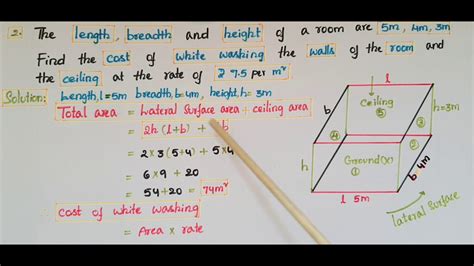 2. The length, breadth and height of a room are 5m, 4m, 3m
Find the cost of white washing the walls of the room and
the ceiling at the rate of ₹ 7.5 per m²
Solution: Length, l=5m breadth, b=4m, height, h=3m
Total area = Lateral Surface area + ceiling area
= 2h (l+b) + b
= 2×3 (5+4) + 5×4
= 6×9 + 20
= 54+20 = 74m²
∴ Cost of white washing
= Area × rate
Ceiling
⑤
b
③
④
②
h
Ground(x)
①
h
b 4m
l 5m
lateral Surface